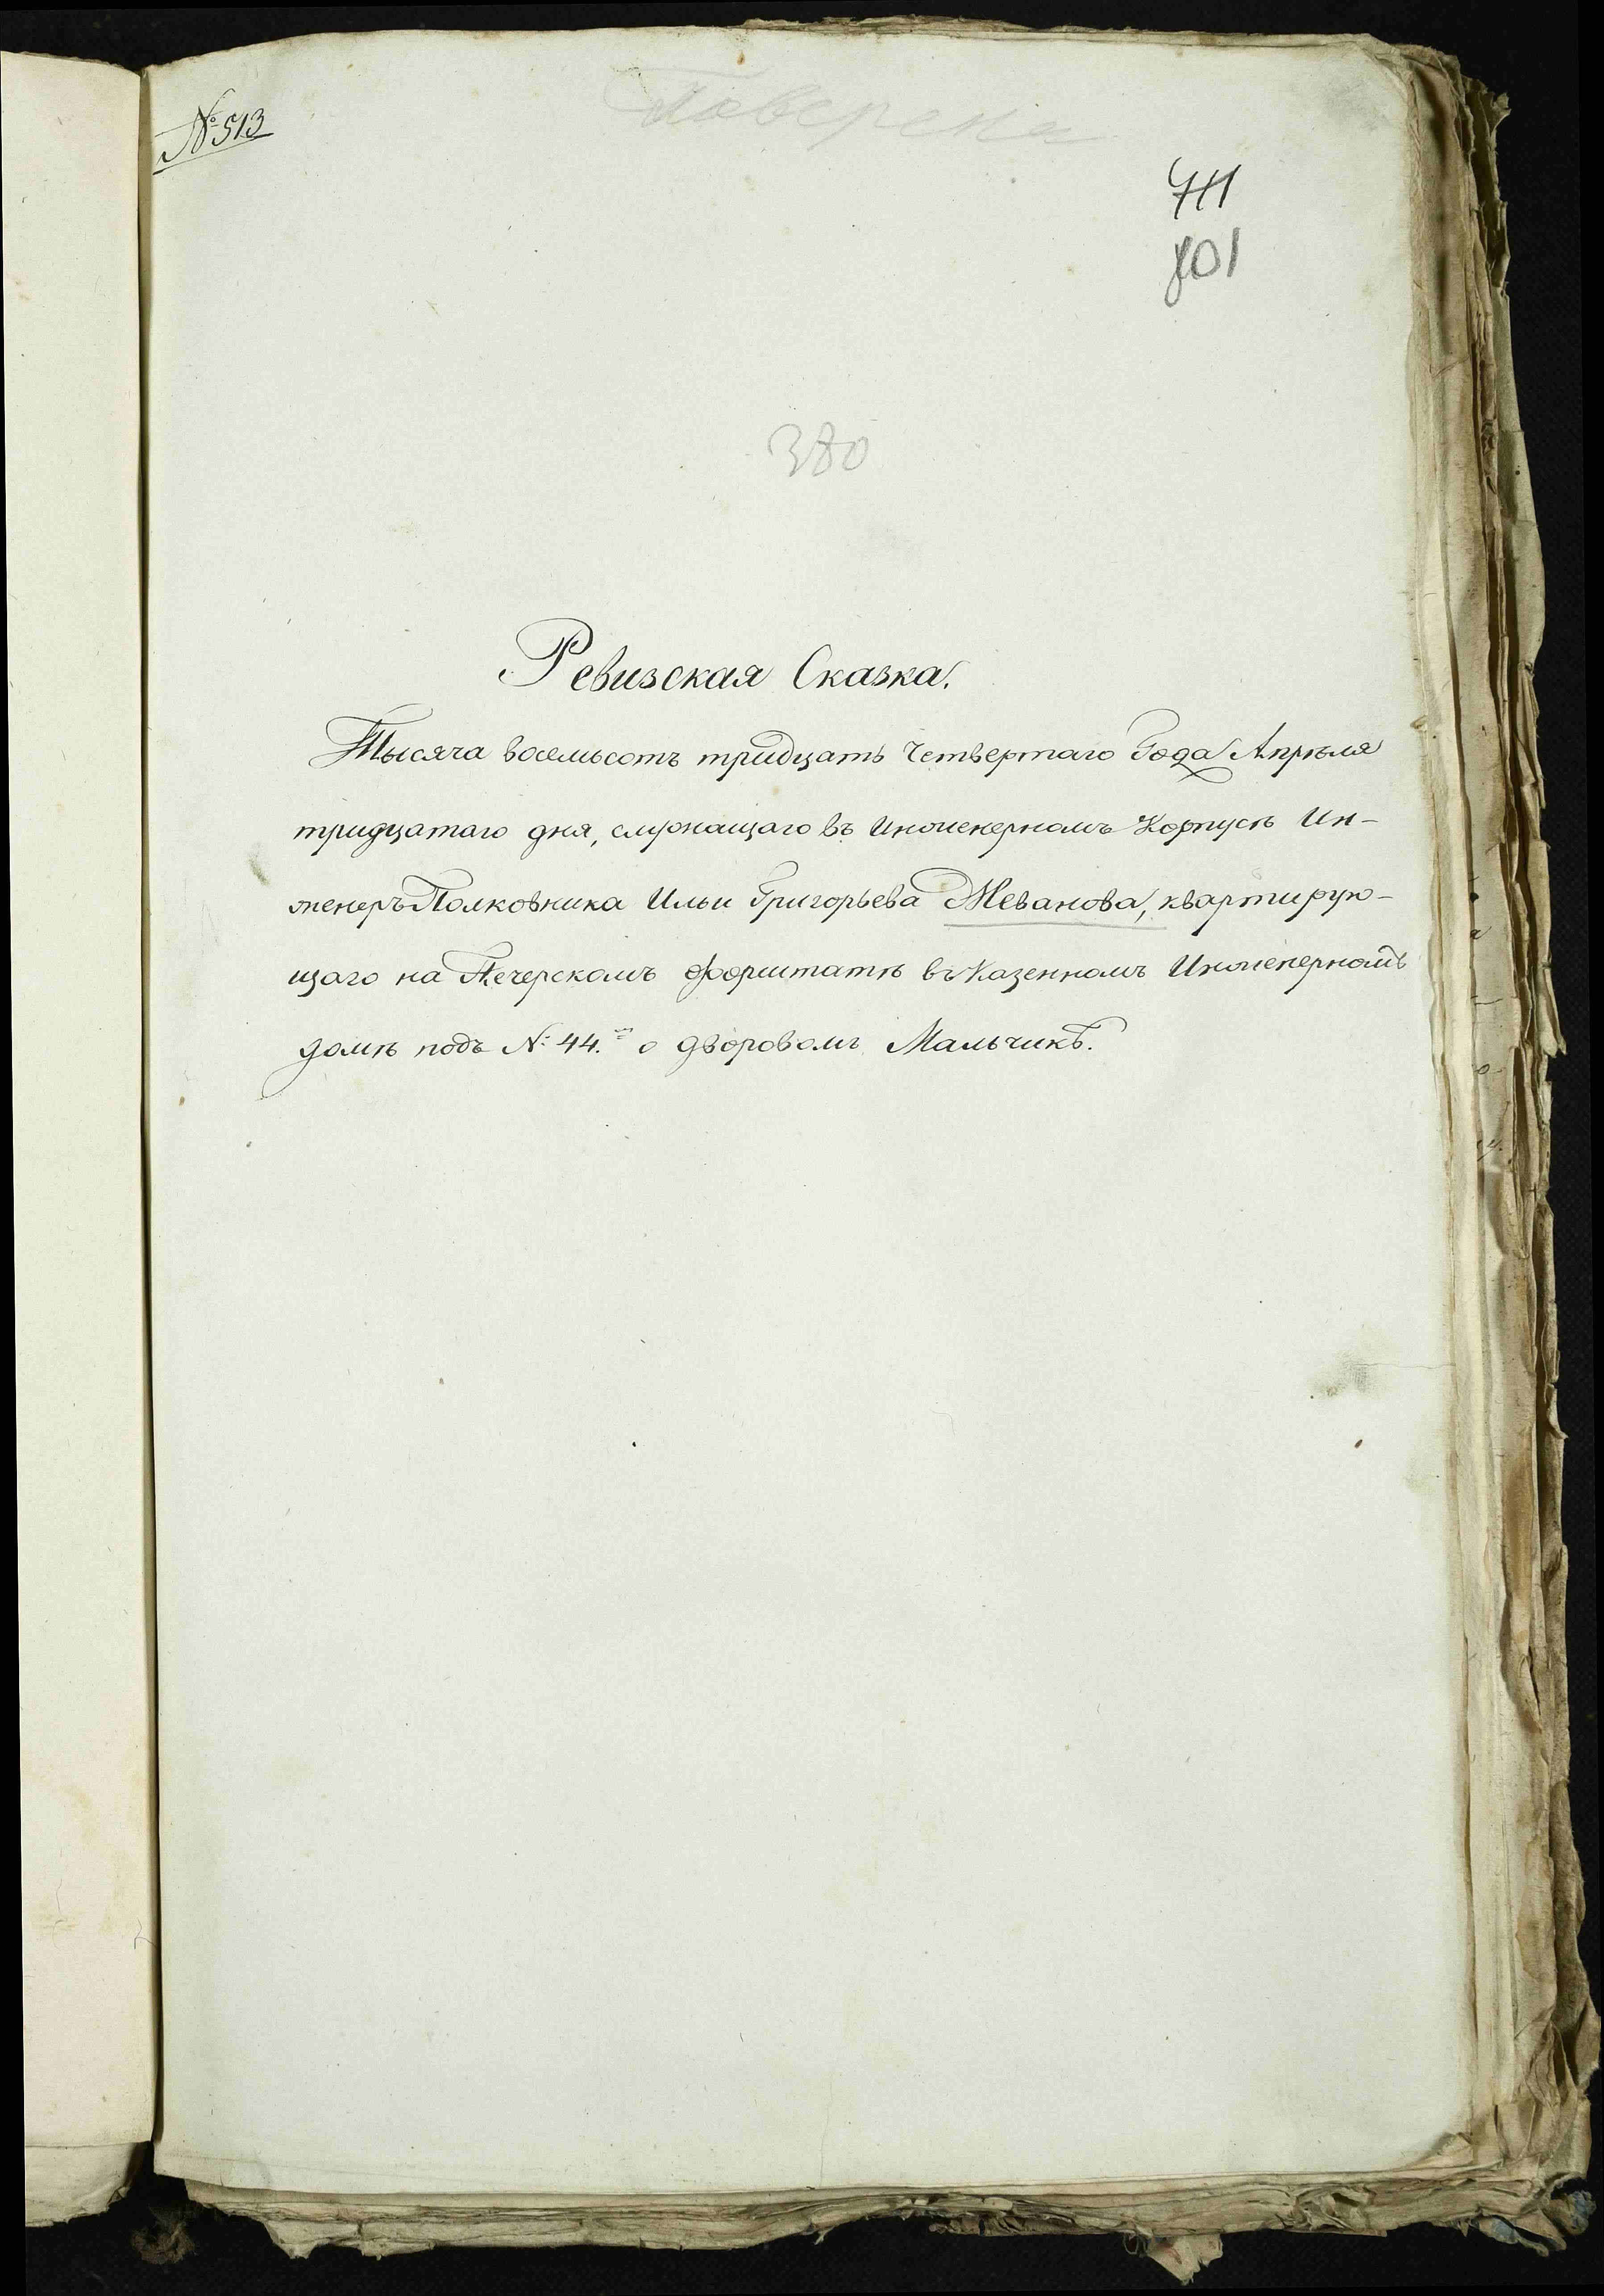 № 513
Поверена
711
801
380
Ревизская Сказка.
Тысяча восемьсотъ тридцать четвертаго Года Апрѣля
тридцатаго дня, служащаго въ Инженерномъ Корпусѣ Ин-
женеръ Полковника Ильи Григорьева Жеванова, квартирую-
щаго на Печерскомъ форштатѣ въ Казенномъ Инженерномъ
домѣ подъ №: 44.мъ о дворовомъ Мальчикѣ.